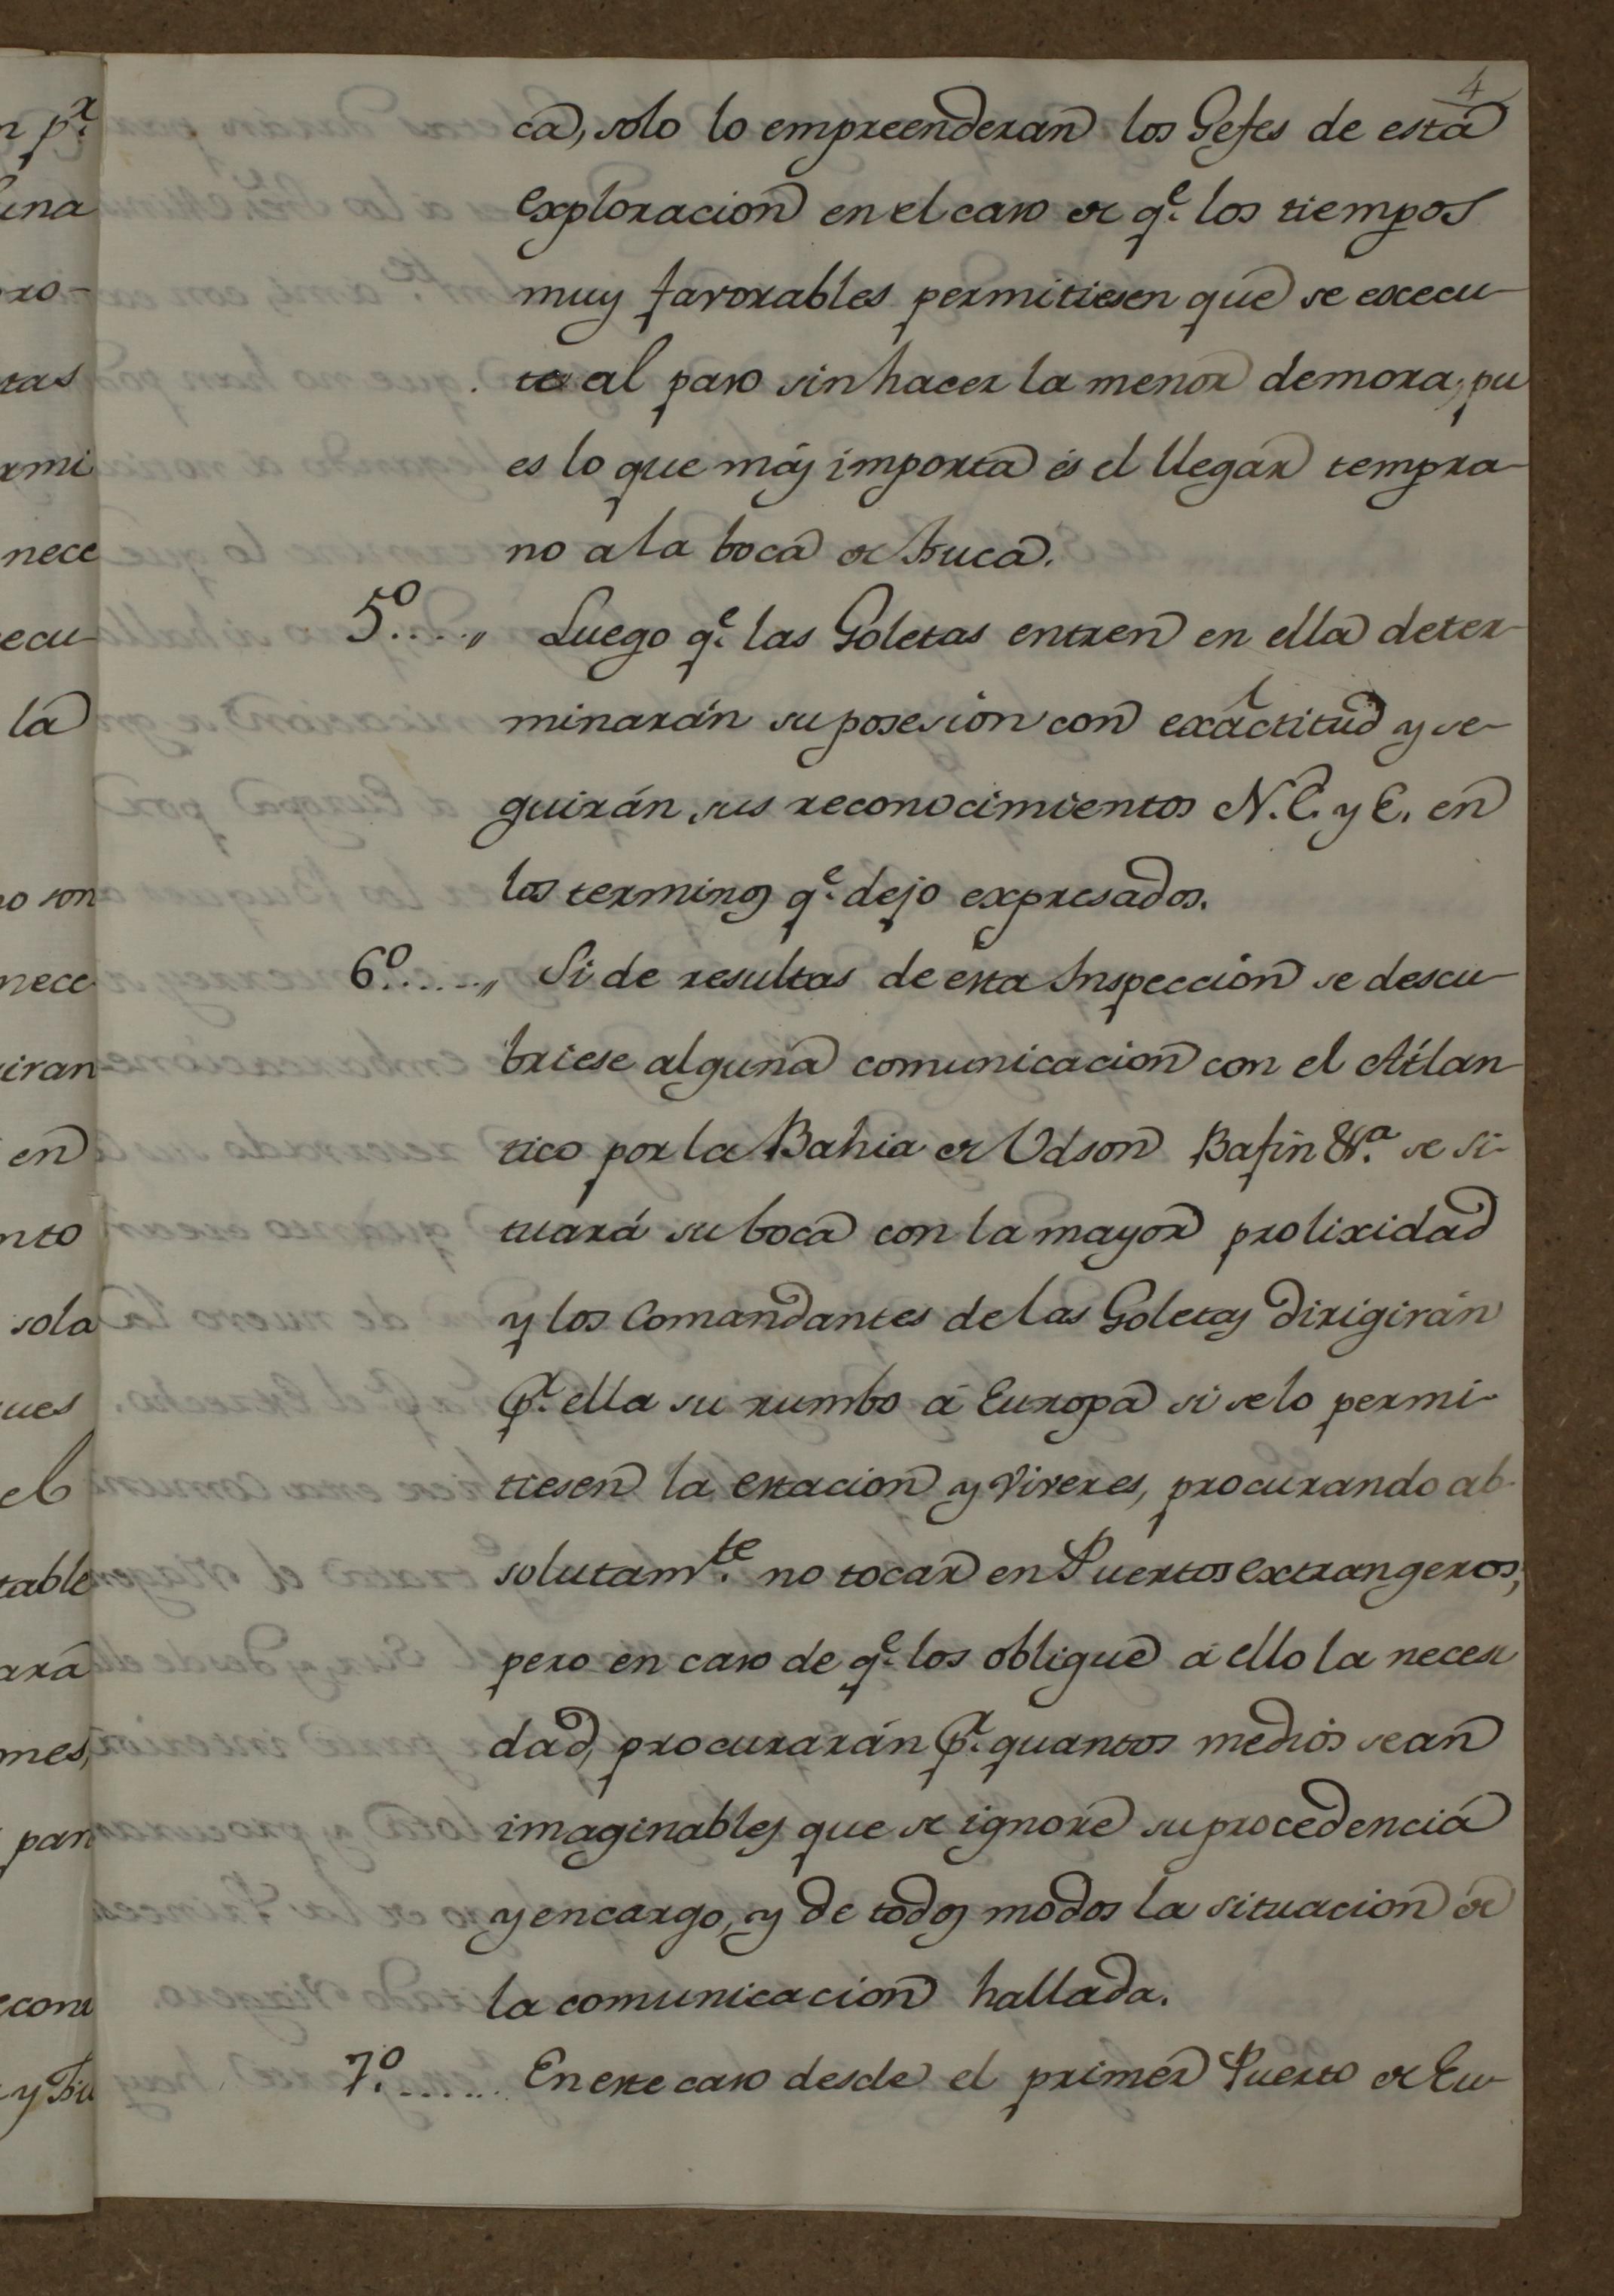 4
ca, solo lo empreenderan los Gefes de esta
exploracion en el caso de q.e los tiempos
muy favorables permitiesen que se execu-
te al paso sin hacer la menor demora, pu
es lo que más importa és el llegar tempra-
no a la boca de Fuca.
5.o....,, Luego q.e las Goletas entren en ella deter-
minarán su posesion con exâctitud y se-
guirán sus reconocimientos N.E. y E. en
los terminos q.e dejo expresados.
6.o.....,, Si de resultas de esta Inspeccion se descu-
briese alguna comunicacion con el Atlan-
tico por la Bahia de Udson Bafin &.a se si-
tuará su boca con la mayor prolixidad
y los Comandantes de las Goletas dirigirán
p.r ella su rumbo á Europa si se lo permi-
tiesen la estacion y viveres, procurando ab-
solutam.te no tocar en Puertos extrangeros,
pero en caso de q.e los obligue á ello la necesi
dad, procurarán p.r quantos medios sean
imaginables que se ignore su procedencia
y encargo, y de todos modos la situacion de
la comunicacion hallada.
7.o...... En este caso desde el primer Puerto de Eu-
n p.r
una
pro-
tas
rmi
nece
ecu-
la
o son
nece
iran
en
nto
sola
ues
el
table
ará
mes,
pan
y Fu